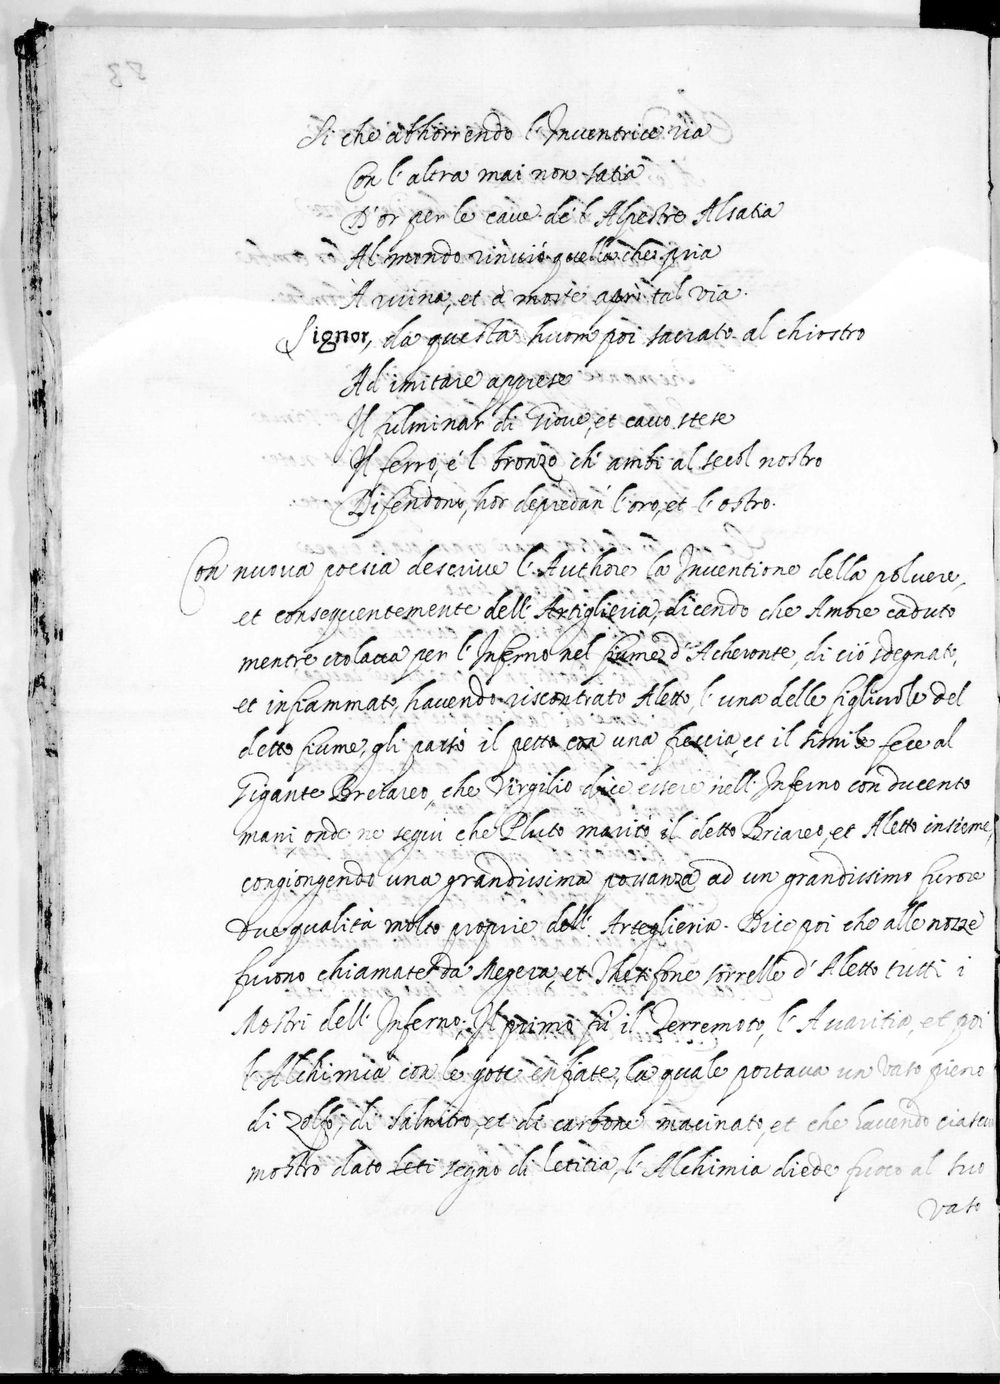 Si che abhorrendo l'Inventrice ria
Con l'altra mai non satia
D'or per le cave de l'Alpestre Alsatia
Al mondo rinviò quella che pria
A ruina, et à morte aprì tal via.
Signor, da questa huom poi sacrato al chiostro
Ad imitare apprese
Il fulminar di Giove, et cavo stese
Il ferro, e 'l bronzo ch' ambi al secol nostro
Difendono, hor depredan' l'oro, et l'ostro.
Con nuova poesia descrive l'Authore la Inventione della polvere,
et consequentemente dell'Artiglieria, dicendo che Amore caduto
mentre volava per l'Inferno nel fiume d'Acheronte, di ciò sdegnato,
et infiammato, havendo riscontrato Aletto, l'una delle figliuole del
detto fiume, gli passò il petto con una freccia, et il simile fece al
Gigante Briareo, che Virgilio dice essere nell'Inferno con ducento
mani onde ne seguì che Pluto maritò il detto Briareo, et Aletto insieme,
congiongendo una grandissima possanza ad un grandissimo furore
due qualità molto proprie dell'Arteglieria. Dice poi che alle nozze
furono chiamate da Megera, et Thesifone sorrelle d'Aletto tutti i
Mostri dell'Inferno; Il primo fù il Terremoto, l'Avaritia, et poi
l'Alchimia con le gote enfiate, la quale portava un vaso pieno
di zolfo, di salnitro, et di carbone macinato, et che havendo ciascun
mostro dato segno di letitia, l'Alchimia diede fuoco al suo
vaso